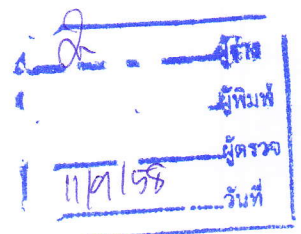 ผู้ร่าง
ผู้พิมพ์
ผู้ตรวจ
11/9/58 วันที่